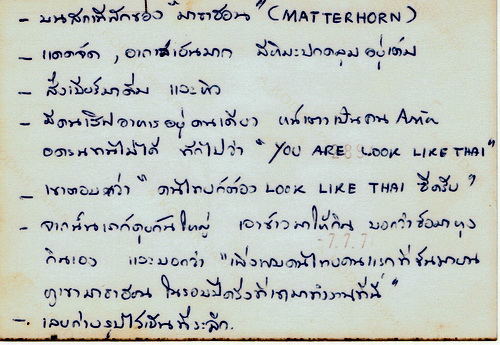 - บนสกีที่พักของ "มาธาฮอน" (MATTERHORN)
- แดดจัด, อากาศเย็นมาก มีหิมะปกคลุมอยู่เต็ม
- สั่งเบียร์มาดื่ม และหิว
- มีคนเสิฟอาหารอยู่คนเดียว หน้าตาเป็นคน
อดรนทนไม่ได้ ทักไปว่า "YOU ARE LOOK LIKE THAI"
- เขาตอบว่า "คนไทยก็ต้อง LOOK LIKE THAI ซีครับ"
- จากนั้นเลยคุยกันใหญ่ เอาข้าวมาให้กิน บอกว่าซื้อมาหุง
กินเอง และบอกว่า "เพิ่งพบคนไทยคนแรกที่ขึ้นมาบน
ภูเขามาธาฮอน ในรอบปีครึ่งที่เขามาทำงานที่นี่"
- เลยถ่ายรูปไว้เป็นที่ระลึก.